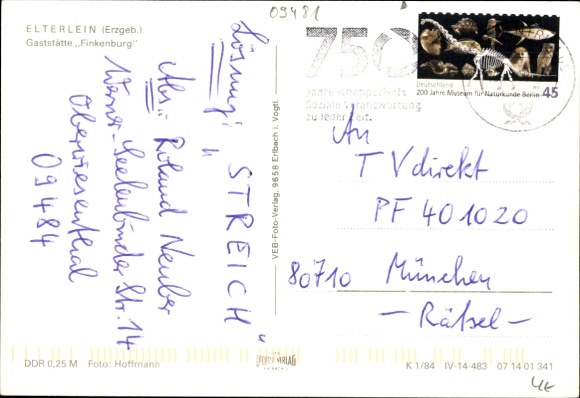 09481
ELTERLEIN (Erzgeb.)
Gaststätte „Finkenburg"
Lösung:
„STREICH"
Abs.: Roland Neuber
Werner-Seelenbinder Str. 14
Oberwiesenthal
09484
VEB-Foto-Verlag, 9658 Erlbach i. Vogtl.
750
Jahre Knappschaft
Soziale Verantwortung
zu jeder Zeit.
Deutschland
200 Jahre Museum für Naturkunde Berlin 45
An
TVdirekt
PF 401020
80710 München
- Rätsel -
DDR 0,25 M Foto: Hoffmann
FOTO-VERLAG
ERLBACH
K 1/84 IV-14-483 07 14 01 341